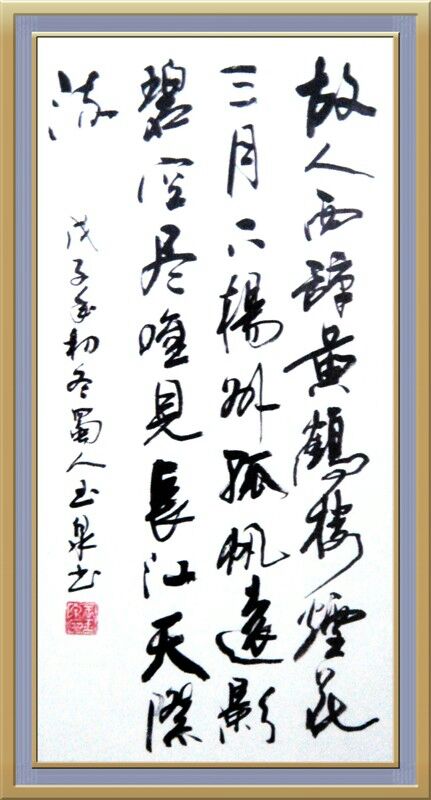 故人西辞黄鶴楼煙花
三月下楊州孤帆遠影
碧空尽唯見長江天際
流
戊子年初冬蜀人玉泉书